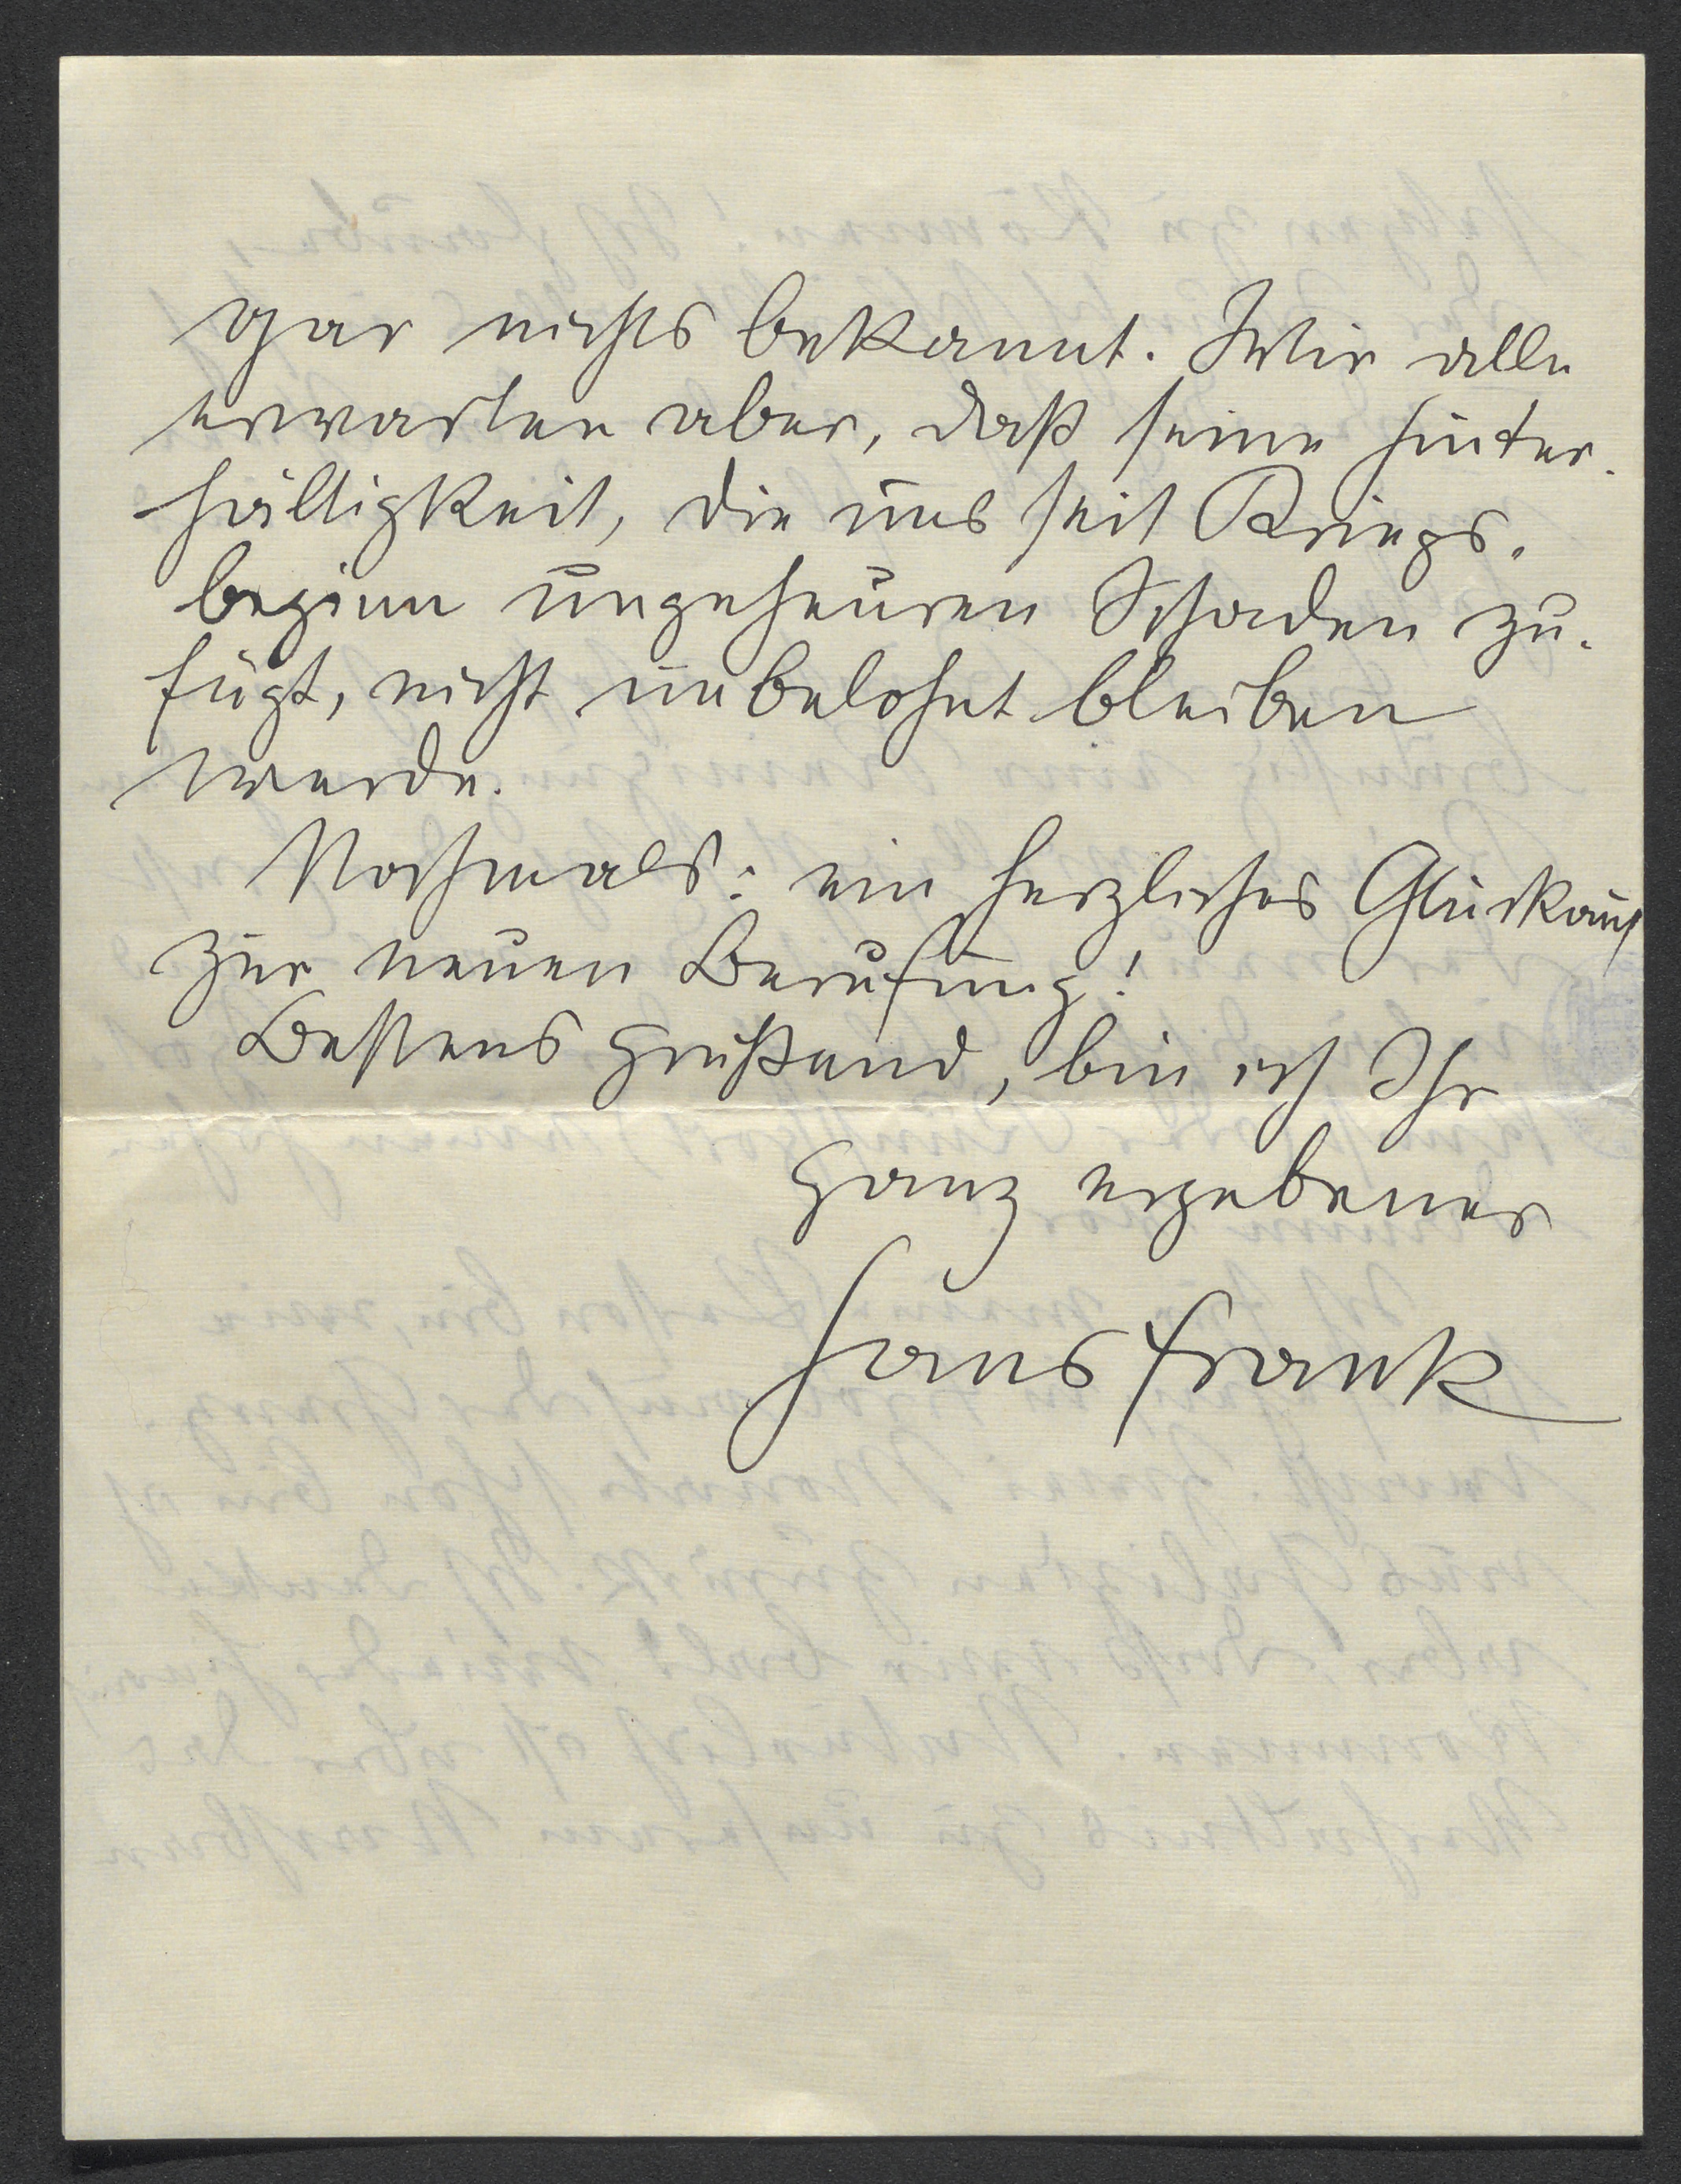 gar nichts bekannt. Wir alle
erwarten aber, daß seine Hinter-
hältigkeit, die uns seit Kriegs-
beginn ungeheuren Schaden zu-
fügt, nicht unbelohnt bleiben
werde.
Nochmals: ein herzliches Glückauf
zur neuen Berufung!
Bestens grüßend, bin ich Ihr
ganz ergebener
Hans Frank